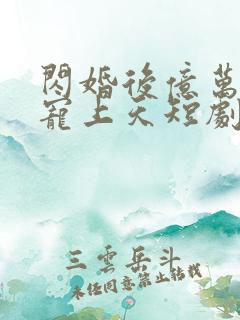 閃婚後億萬
寵上天短劇
三雲岳斗
未經同意禁止轉載